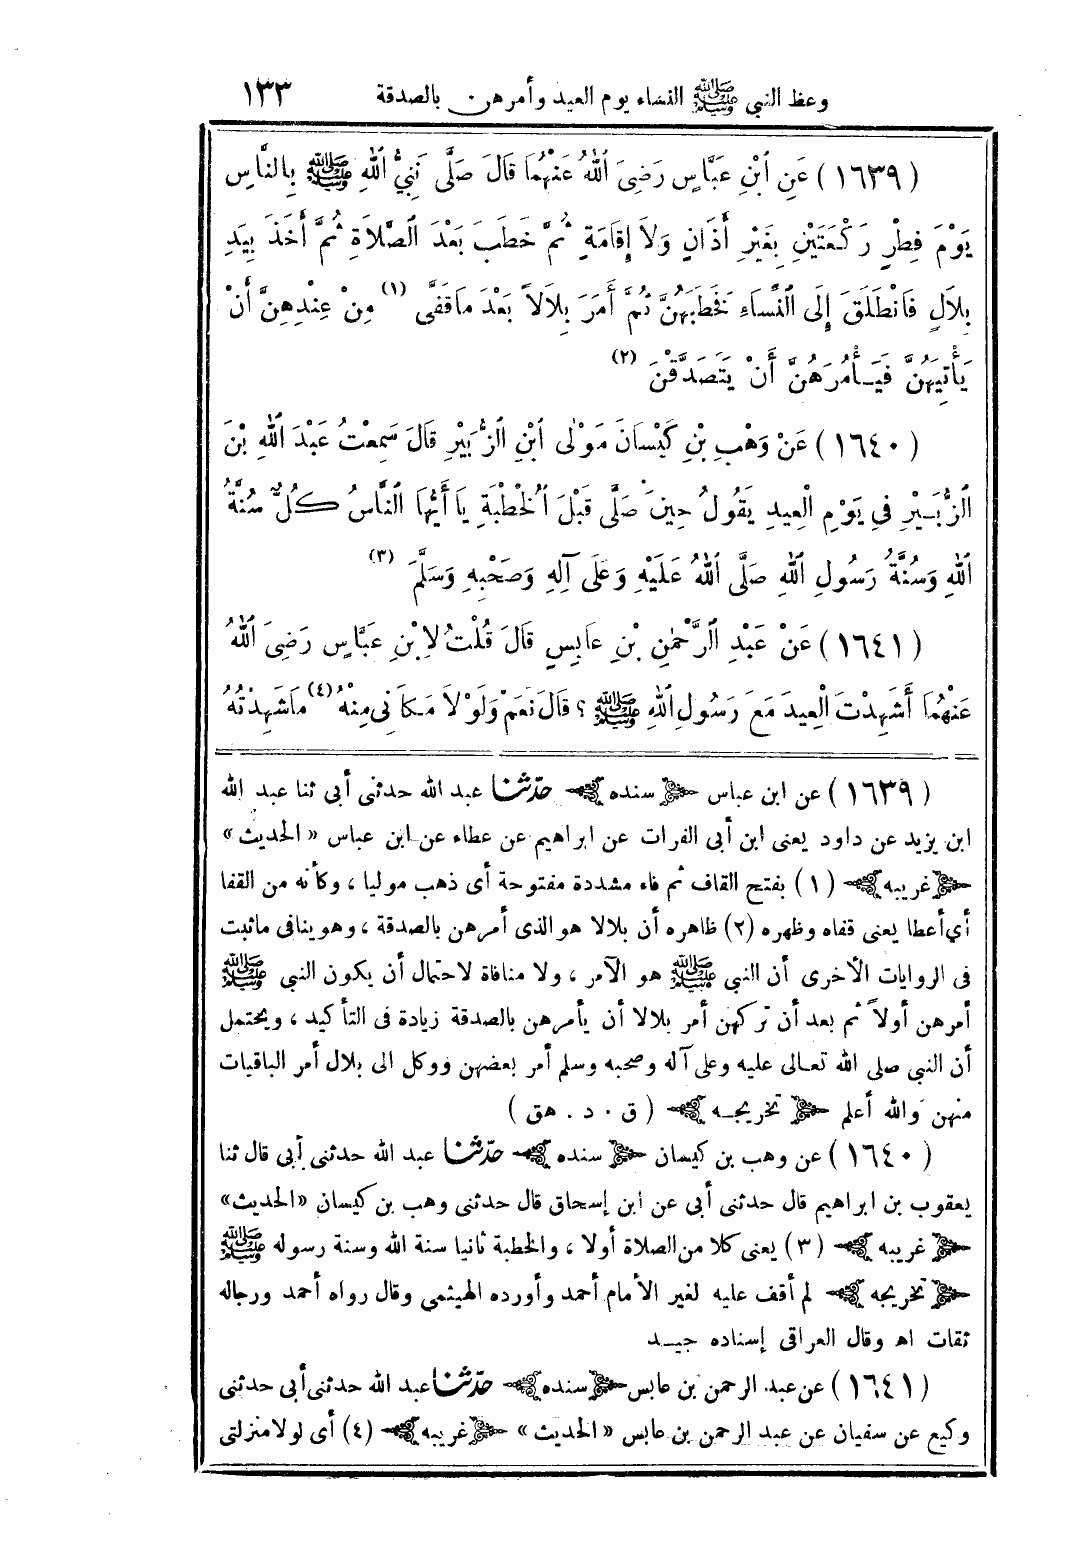 وعظ النبي ﷺ النساء يوم العيد وأمرهن بالصدقة ١٣٣
(١٦٣٩) عَنِ ٱبْنِ عَبَّاسٍ رَضِىَ ٱللهُ عَنْهُمَا قَالَ صَلَّى نَبِيُّ ٱللهِ ﷺ بِالنَّاسِ
يَوْمَ فِطْرٍ رَكْعَتَيْنِ بِغَيْرِ أَذَانٍ وَلَا إِقَامَةٍ ثُمَّ خَطَبَ بَعْدَ ٱلصَّلَاةِ ثُمَّ أَخَذَ بِيَدِ
بِلَالٍ فَانْطَلَقَ إِلَى ٱلنِّسَاءِ فَخَطَبَهُنَّ ثُمَّ أَمَرَ بِلَالاً بَعْدَ مَا قَفَّى (١) مِنْ عِنْدِهِنَّ أَنْ
يَأْتِيَهُنَّ فَيَأْمُرَهُنَّ أَنْ يَتَصَدَّقْنَ (٢)
(١٦٤٠) عَنْ وَهْبِ بْنِ كَيْسَانَ مَوْلَى ٱبْنِ ٱلزُّبَيْرِ قَالَ سَمِعْتُ عَبْدَ ٱللهِ بْنَ
ٱلزُّبَيْرِ فِي يَوْمِ ٱلْعِيدِ يَقُولُ حِينَ صَلَّى قَبْلَ ٱلْخُطْبَةِ يَا أَيُّهَا ٱلنَّاسُ كُلٌّ سُنَّةُ
ٱللهِ وَسُنَّةُ رَسُولِ ٱللهِ صَلَّى ٱللهُ عَلَيْهِ وَعَلَى آلِهِ وَصَحْبِهِ وَسَلَّمَ (٣)
(١٦٤١) عَنْ عَبْدِ ٱلرَّحْمٰنِ بْنِ عَابِسٍ قَالَ قُلْتُ لِابْنِ عَبَّاسٍ رَضِىَ ٱللهُ
عَنْهُمَا أَشَهِدْتَ ٱلْعِيدَ مَعَ رَسُولِ ٱللهِ ﷺ ؟ قَالَ نَعَمْ وَلَوْلَا مَكَانِى مِنْهُ (٤) مَا شَهِدْتُهُ
(١٦٣٩) عن ابن عباس ﴿ سنده ﴾ حدّثنا عبد الله حدثنى أبي ثنا عبد الله
ابن يزيد عن داود يعنى ابن أبى الفرات عن ابراهيم عن عطاء عن ابن عباس «الحديث»
﴿ غريبه ﴾ (١) بفتح القاف ثم فاء مشددة مفتوحة أى ذهب موليا ، وكأنه من القفا
أي أعطا يعنى قفاه وظهره (٢) ظاهره أن بلالا هو الذى أمرهن بالصدقة ، وهو ينافى ماثبت
فى الروايات الأخرى أن النبي ﷺ هو الآمر ، ولا منافاة لاحتمال أن يكون النبي ﷺ
أمرهن أولاً ثم بعد أن تركهن أمر بلالا أن يأمرهن بالصدقة زيادة فى التأكيد ، ويحتمل
أن النبي صلى الله تعالى عليه وعلى آله وصحبه وسلم أمر بعضهن ووكل الى بلال أمر الباقيات
منهن والله أعلم ﴿ تخريجه ﴾ ( ق . د . هق )
(١٦٤٠) عن وهب بن كيسان ﴿ سنده ﴾ حدّثنا عبد الله حدثنى أبى قال ثنا
يعقوب بن ابراهيم قال حدثنى أبى عن ابن إسحاق قال حدثنى وهب بن كيسان «الحديث»
﴿ غريبه ﴾ (٣) يعنى كلا من الصلاة أولا ، والخطبة ثانيا سنة الله وسنة رسوله ﷺ
﴿ تخريجه ﴾ لم أقف عليه لغير الأمام أحمد وأورده الهيثمى وقال رواه أحمد ورجاله
ثقات اه وقال العراقى إسناده جيد
(١٦٤١) عن عبد الرحمن بن عابس ﴿ سنده ﴾ حدّثنا عبد الله حدثنى أبى حدثنى
وكيع عن سفيان عن عبد الرحمن بن عابس «الحديث» ﴿ غريبه ﴾ (٤) أى لولا منزلتى